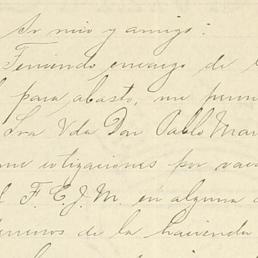 Sr mio y amigo:
Teniendo encargo de
para abasto, me perm
Sra Vda Don Pablo Mar
me cotizaciones por vac
F. C. J. M. en alguna
terrenos de la hacienda